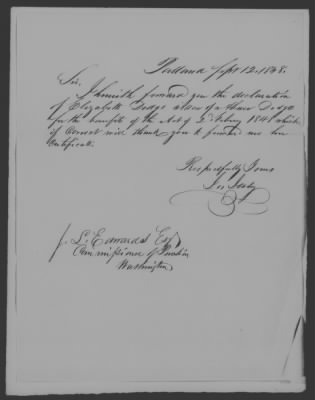 Portland Sept 12. 1848.
Sir,
I herewith forward you the declaration
of Elizabeth Dodge widow of Dodge
for the benefit of the Act of 2d Feby 184 which
if correct will thank you to me her
Certificate.
Respectfully Yours
J. L. Edwards Esq
Commissioner of
Washington